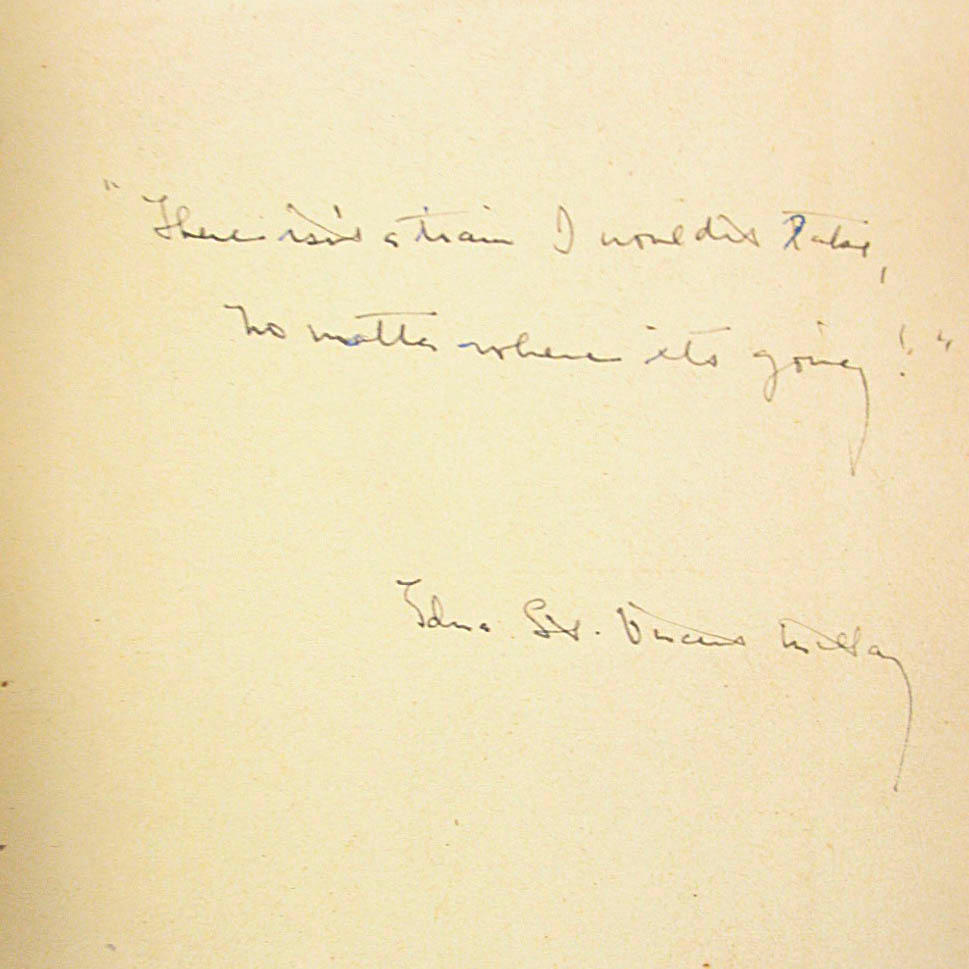 "There isn't a train I wouldn't take,
No matter where it's going!"
Edna St. Vincent Millay